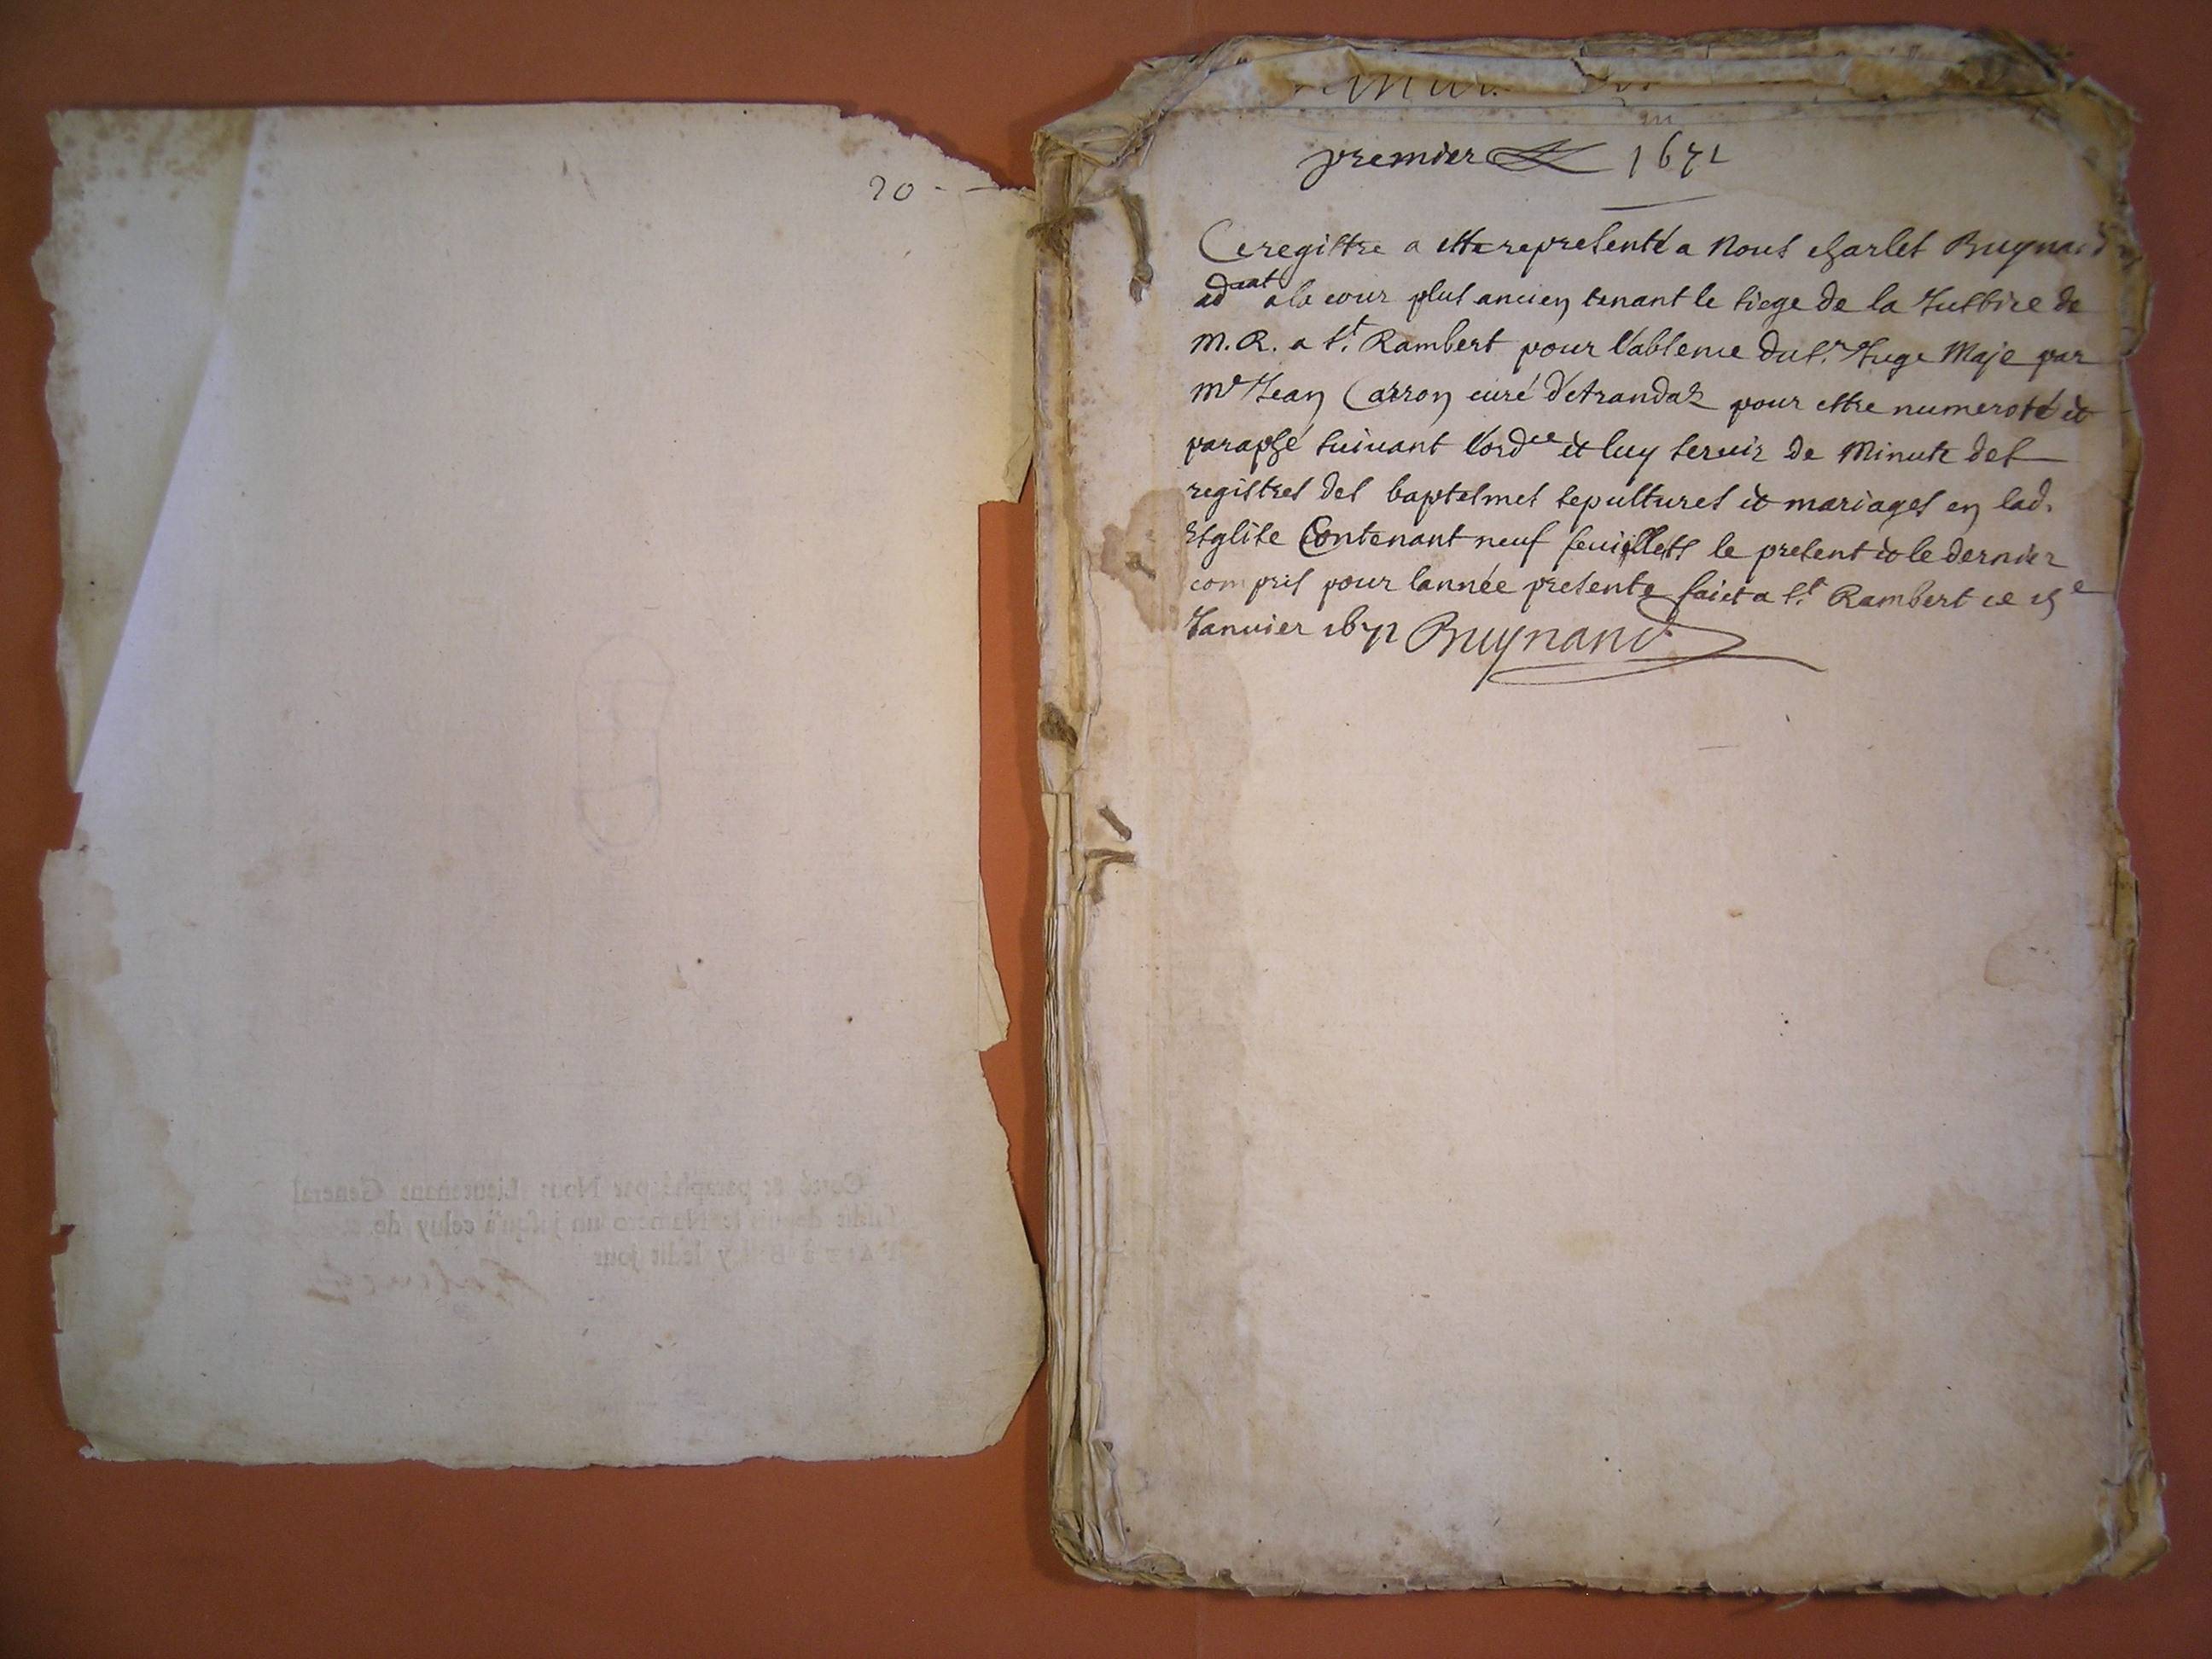 20
premier 1671
Ce registre a esté representé a Nous Charles Buynand
adcat a la cour plus ancien tenant le siege de la Justice de
M.R. a St. Rambert pour l'absence du Sr. Juge Maje par
Mre Jean Carron curé d'Etrandaz pour estre numeroté et
paraphé suivant l'ordce et luy servir de Minute des
registres des baptesmes sepultures et mariages en lad.
Esglise Contenant neuf feuillets le present et le dernier
compris pour lannée presente faict a St. Rambert ce
Janvier 1671 Buynand
Cotté & paraphé par Nous Lieutenant General
depuis le Numero un jusqu'à celuy de
ledit jour